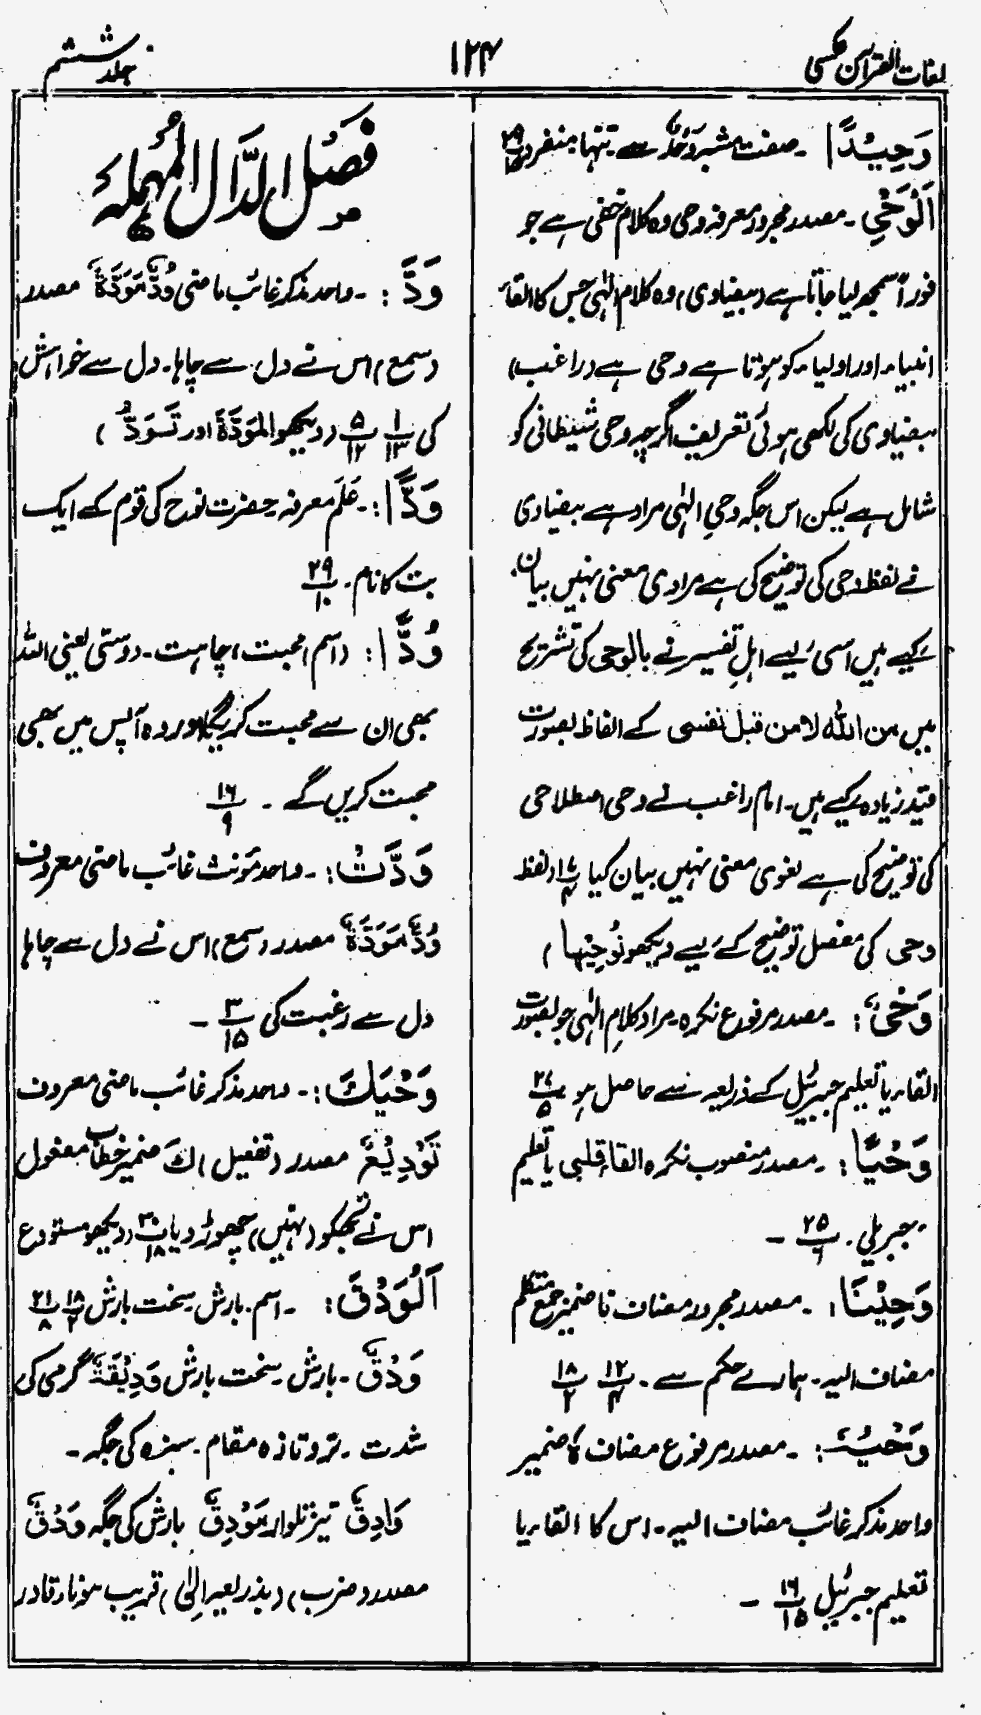 لغات القرآن عکسی
۱۲۴
جلد ششم
وَحِیْدًا۔ صفت مشبہ وَحْدٌ سے۔ تنہا، منفرد ۲۹/۱۵
اَلْوَحْیِ۔ مصدر مجرور معرفہ وحی وہ کلام خفی ہے جو
فوراً سمجھ لیا جاتا ہے (بیضاوی) وہ کلام الٰہی جس کا القاء
انبیاء اور اولیاء کو ہوتا ہے وحی ہے (راغب)
بیضاوی کی لکھی ہوئی تعریف اگرچہ وحی شیطانی کو
شامل ہے لیکن اس جگہ وحیِ الٰہی مراد ہے بیضاوی
نے لفظ وحی کی توضیح کی ہے مرادی معنی نہیں بیان
کیے ہیں اسی لیے اہلِ تفسیر نے بالوحی کی تشریح
میں من اللہ لا من قبل نفسی کے الفاظ بصورت
قید زیادہ کیے ہیں۔ امام راغب نے وحی اصطلاحی
کی توضیح کی ہے لغوی معنی نہیں بیان کیا ۱۷/۴ (لفظ
وحی کی مفصل توضیح کے لیے دیکھو نُوْحِیْہَا)
وَحْیٌ:۔ مصدر مرفوع نکرہ۔ مراد کلامِ الٰہی جو بصورت
القاء یا تعلیم جبرئیل کے ذریعہ سے حاصل ہو ۲۷/۵
وَحْیًا:۔ مصدر منصوب نکرہ القاء قلبی یا تعلیم
جبریلی۔ ۲۵/۶ ۔
وَحْیِنَا:۔ مصدر مجرور مضاف نا ضمیر جمع متکلم
مضاف الیہ۔ ہمارے حکم سے۔ ۱۲/۴ ۱۸/۲
وَحْیُہٗ:۔ مصدر مرفوع مضاف ہٗ ضمیر
واحد مذکر غائب مضاف الیہ۔ اس کا القاء یا
تعلیم جبرئیل ۱۶/۱۵ ۔
فَصْلُ الدَّالِ الْمُہْمَلَۃِ
وَدَّ:۔ واحد مذکر غائب ماضی وُدٌّ مَوَدَّۃٌ مصدر
(سمع) اس نے دل سے چاہا۔ دل سے خواہش
کی ۱/۱۳ ۵/۱۲ (دیکھو المَوَدَّۃَ اور تَوَدُّ)
وَدًّا:۔ عَلَم معرفہ حضرت نوح کی قوم کے ایک
بت کا نام۔ ۲۹/۱۰
وُدًّا: (اسم) محبت، چاہت۔ دوستی یعنی اللہ
بھی ان سے محبت کریگا اور وہ آپس میں بھی
محبت کریں گے۔ ۱۶/۹
وَدَّتْ:۔ واحد مؤنث غائب ماضی معروف
وُدٌّ مَوَدَّۃٌ مصدر (سمع) اس نے دل سے چاہا
دل سے رغبت کی ۳/۱۵ ۔
وَدَّعَکَ:۔ واحد مذکر غائب ماضی معروف
تَوْدِیْعٌ مصدر (تفعیل) کَ ضمیر خطاب مفعول
اس نے تجھکو (نہیں) چھوڑ دیا ۳۰/۱۸ (دیکھو مستودع
اَلْوَدْقَ:۔ اسم۔ بارش۔ سخت بارش ۱۸/۱۲ ۲۱/۸
وَدْقٌ۔ بارش۔ سخت بارش وَدِیْقَۃٌ گرمی کی
شدت۔ تر و تازہ مقام۔ سبزہ کی جگہ۔
وَادِقٌ تیز تلوار مَوْدِقٌ بارش کی جگہ وَدْقٌ
مصدر (ضرب) (بذریعہ اِلیٰ) قریب ہونا، قادر